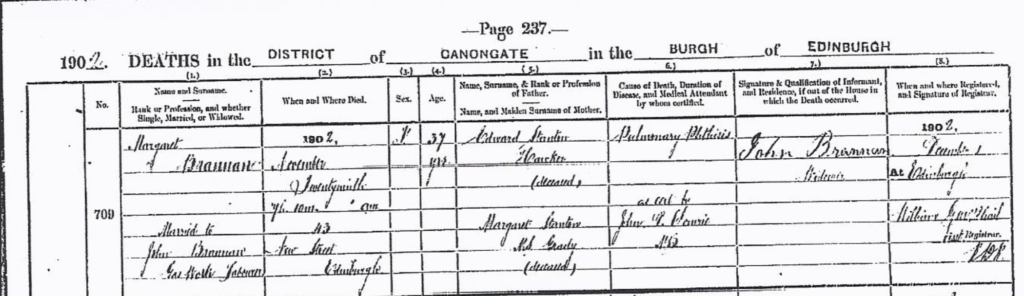 —Page 237.—
1902. DEATHS in the DISTRICT of CANONGATE in the BURGH of EDINBURGH
(1.) (2.) (3.) (4.) (5.) 6.) 7.) (8.)
No.
Name and Surname.
Rank or Profession, and whether
Single, Married, or Widowed.
When and Where Died.
Sex.
Age.
Name, Surname, & Rank or Profession
of Father.
Name, and Maiden Surname of Mother.
Cause of Death, Duration of
Disease, and Medical Attendant
by whom certified.
Signature & Qualification of Informant,
and Residence, if out of the House in
which the Death occurred.
When and where Registered,
and Signature of Registrar.
709
Margaret
Brannan
Married to
John Brannan
Gas Work Labourer
1902,
November
Twentyninth
7h. 10m.
43
New Street
Edinburgh
F
37
yrs
Edward Stanton
Hawker
(deceased)
Margaret Stanton
M.S. Grady
(deceased)
Pulmonary Phthisis
as cert by
John
John Brannan
Widower
1902,
December 1
At Edinburgh
Registrar.